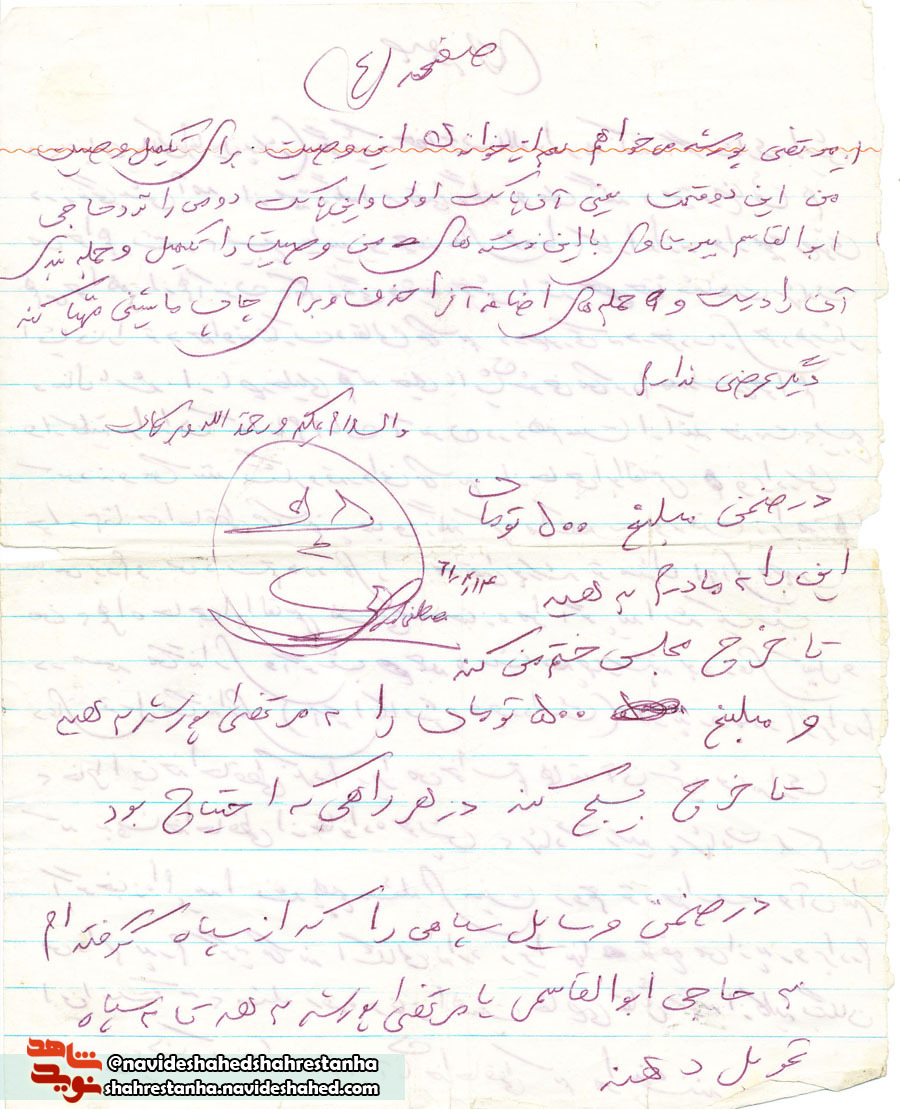 صفحه (٤)
از مرتضی پورشه می‌خواهم بعد از خواندن این وصیت برای تکمیل وصیت
من این دو قسمت یعنی آن پاکت اولی و این پاکت دومی را نزد حاجی
ابوالقاسم ببرند تا وی با این نوشته‌های من وصیت را تکمیل و جمله بندی
آن را درست و جمله‌های اضافه آنرا حذف و برای چاپ ماشینی مهیّا کند
دیگر عرضی ندارم
والسلام علیکم و رحمة الله و برکاته
در ضمن مبلغ ۵۰۰ تومان
این را به مادرم بدهید
۶۱/۲/۱۴
تا خرج مجلس ختم من کند
و مبلغ ۵۰۰ تومان را به مرتضی پورشه بدهید
تا خرج بسیج کند در هر راهی که احتیاج بود
در ضمن وسایل سپاهی را که از سپاه گرفته‌ام
به حاجی ابوالقاسمی یا مرتضی پورشه بدهد تا به سپاه
تحویل دهند
شاهد
نوید
©navideshahedshahrestanha
shahrestanha.navideshahed.com